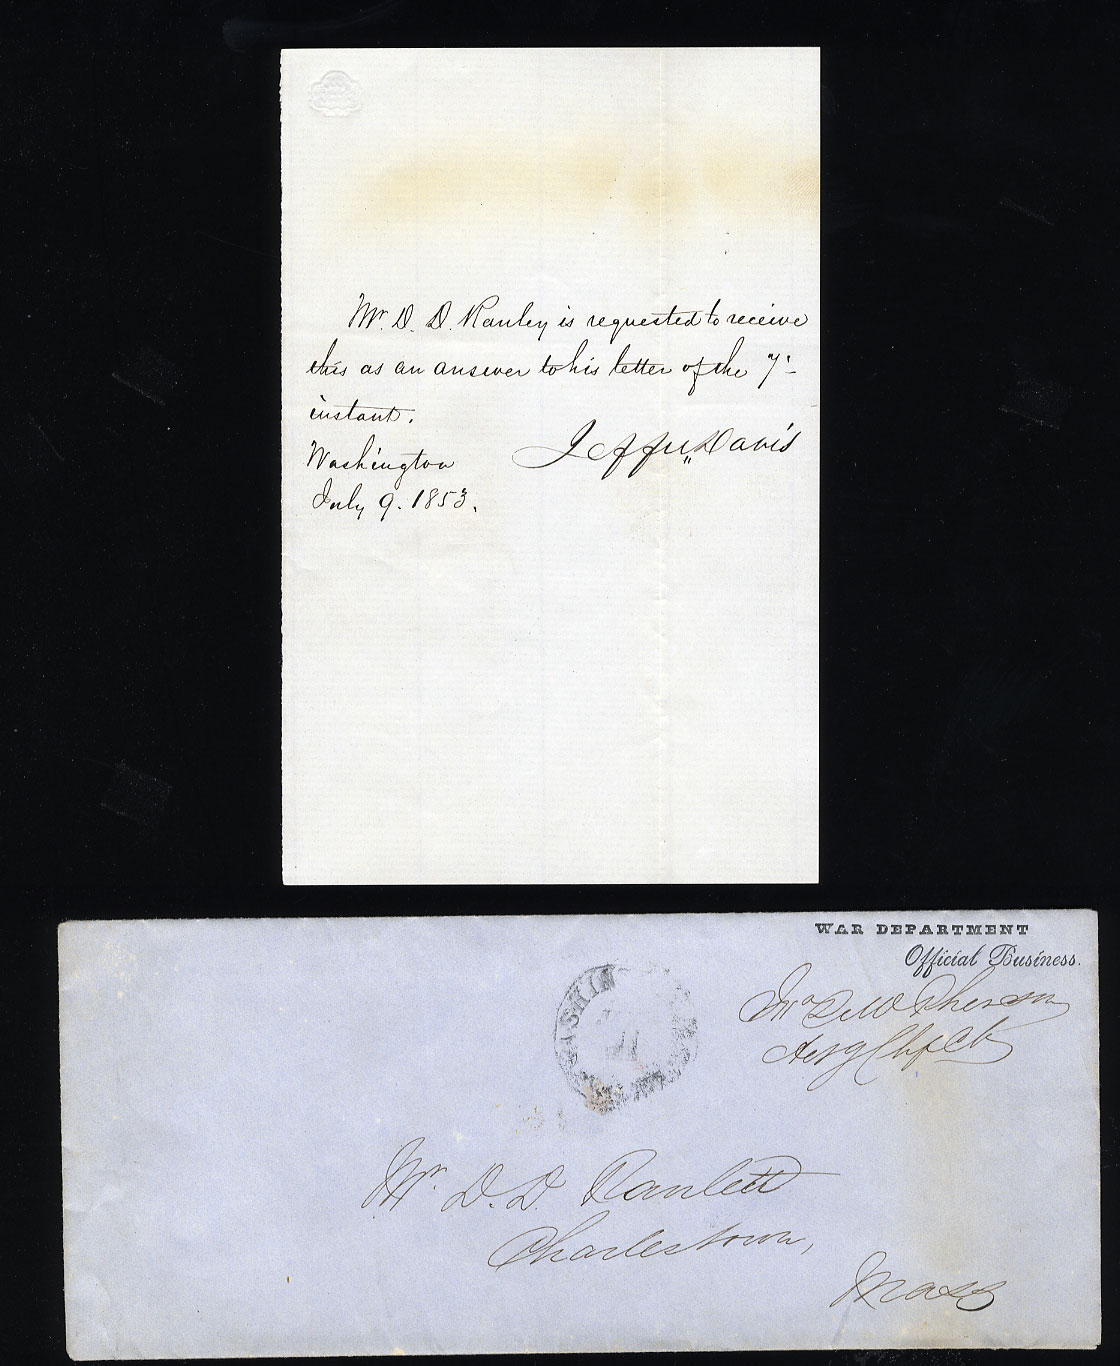 Mr. D. D. Ranley is requested to receive
this as an answer to his letter of the 7"
instant.
Jeffn. Davis
Washington
July 9. 1853.
WAR DEPARTMENT
Official Business.
WASHIN
Mr. D. D. Ranlett
Charlestown,
Mass